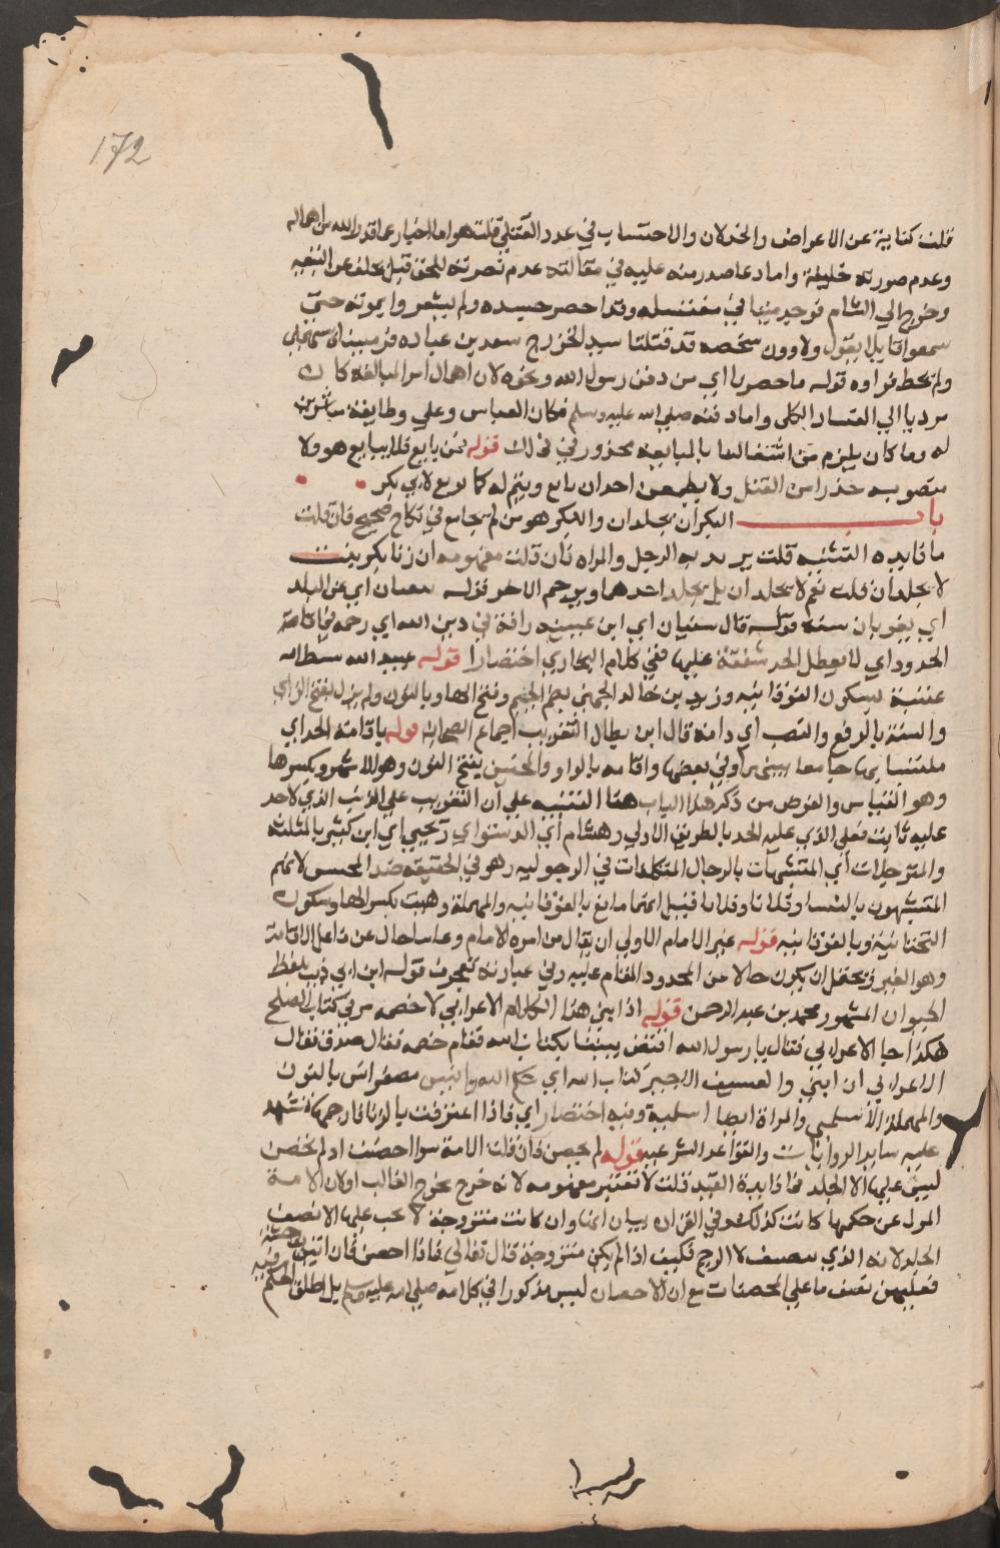 172
قلت كناية عن الاعراض والخذلان والاحتساب في عدد القتلى قلت هو اما اخبار عما قدر الله من اهماله
وعدم صيرورته خليفة واما دعا صدر منه عليه في مقالته عدم نصرته للحق قيل تخلف عن البيعة
وخرج الي الشام فوجد ميتا في مغتسله وقد اخضر جسده ولم يشعروا بموته حتى
سمعوا قايلا يقول ولا يرون شخصه قد قتلنا سيد الخزرج سعد بن عباده فرميناه بسهمين
ولم نخط فواده قوله ما حضرنا اي من دفن رسول الله ونحوه لان اهمال امر المبايعة كان
مرديا الي الفساد الكلي واما دفنه صلي الله عليه وسلم فكان العباس وعلي وطايفة مباشرين
له وما كان يلزم من اشتغالنا بالمبايعة محذور في ذلك قوله فمن بايع فلا يبايع هو ولا
منصوبه حذرا من القتل ولا يطمعن احد ان يبايع ويتم له كما بويع لابي بكر
باب البكران يجلدان والبكر هو من لم يجامع في نكاح صحيح فان قلت
ما فايده التثنية قلت يريد به الرجل والمراه فان قلت مفهومه ان زنا بكر بثيب
لا يجلدان قلت نعم لا يجلدان بل يجلد احدهما ويرجم الاخر قوله ينفيان اي عن البلد
اي يغربان سنة قوله قال سفيان اي ابن عيينه رافة في دين الله اي رحمة في اقامة
الحدود اي لا يعطل الحد شفقة عليهما ففي كلام البخاري اختصارا قوله عبيد الله سبط
عتبة بسكون الفوقانيه وزيد بن خالد الجهني بضم الجيم وفتح الها وبالنون ولم يزل بفتح الزاي
والسنة بالرفع والنصب اي دامت قال ابن بطال التغريب اجماع الصحابة قوله باقامة الحد اي
ملتبسا بها جامعا بينهما وفي بعضها واقامة بالواو والمخنثين بفتح النون وهو الاشهر وبكسرها
وهو القياس والغرض من ذكر هذا الباب هنا التنبيه علي ان التغريب علي الذنب الذي لا حد
عليه ثابت فعلي الذي عليه الحد بالطريق الاولي وهشام اي الدستواي ويحيي اي ابن كثير بالمثلثة
والمترجلات اي المتشبهات بالرجال المتكلفات في الرجولية وهو في الحقيقة ضد المخنثين لانهم
المتشبهون بالنسا وفلانا وفلانا قيل انهما ماتع بالفوقانيه والمهملة وهيت بكسر الها وسكون
التحتانية وبالفوقانيه قوله غير الامام الاولي ان يقال من امره الامام وغائبا حال عن فاعل الاقامة
وهو الغير ويحتمل ان يكون حالا من المحدود المقام عليه وفي عبارته تعجرف قوله ابن ابي ذيب بلفظ
الحيوان المشهور محمد بن عبد الرحمن قوله اذا بني هذا الكلام الاعرابي لا خصمه مر في كتاب الصلح
هكذا جا الاعرابي فقال يا رسول الله اقض بيننا بكتاب الله فقام خصمه فقال صدق فقال
الاعرابي ان ابني والعسيف الاجير كتاب الله اي حكم الله وانيس مصغر انس بالنون
والمهملة الاسلمي والمراة ايضا اسلمية وفيه اختصار اي فاذا اعترفت بالزنا فارجمها تشهد
عليه ساير الروايات والقواعد الشرعيه قوله لم تحصن فان قلت الامة سوا احصنت او لم تحصن
ليس عليها الا الجلد فما فايدة القيد قلت لا تعتبر مفهومه لانه خرج مخرج الغالب اولان الامة
المسول عن حكمها كانت كذلك وفي القران بيان انها وان كانت متزوجة لا يجب عليها الا نصف
الحد لانه الذي ينصف لا الرجم فكيف اذا لم يكن متزوجة قال تعالي فاذا احصن فان اتين بفاحشة
فعليهن نصف ما علي المحصنات مع ان الاحصان ليس مذكورا في كلامه صلي الله عليه وسلم بل اطلق الحكم